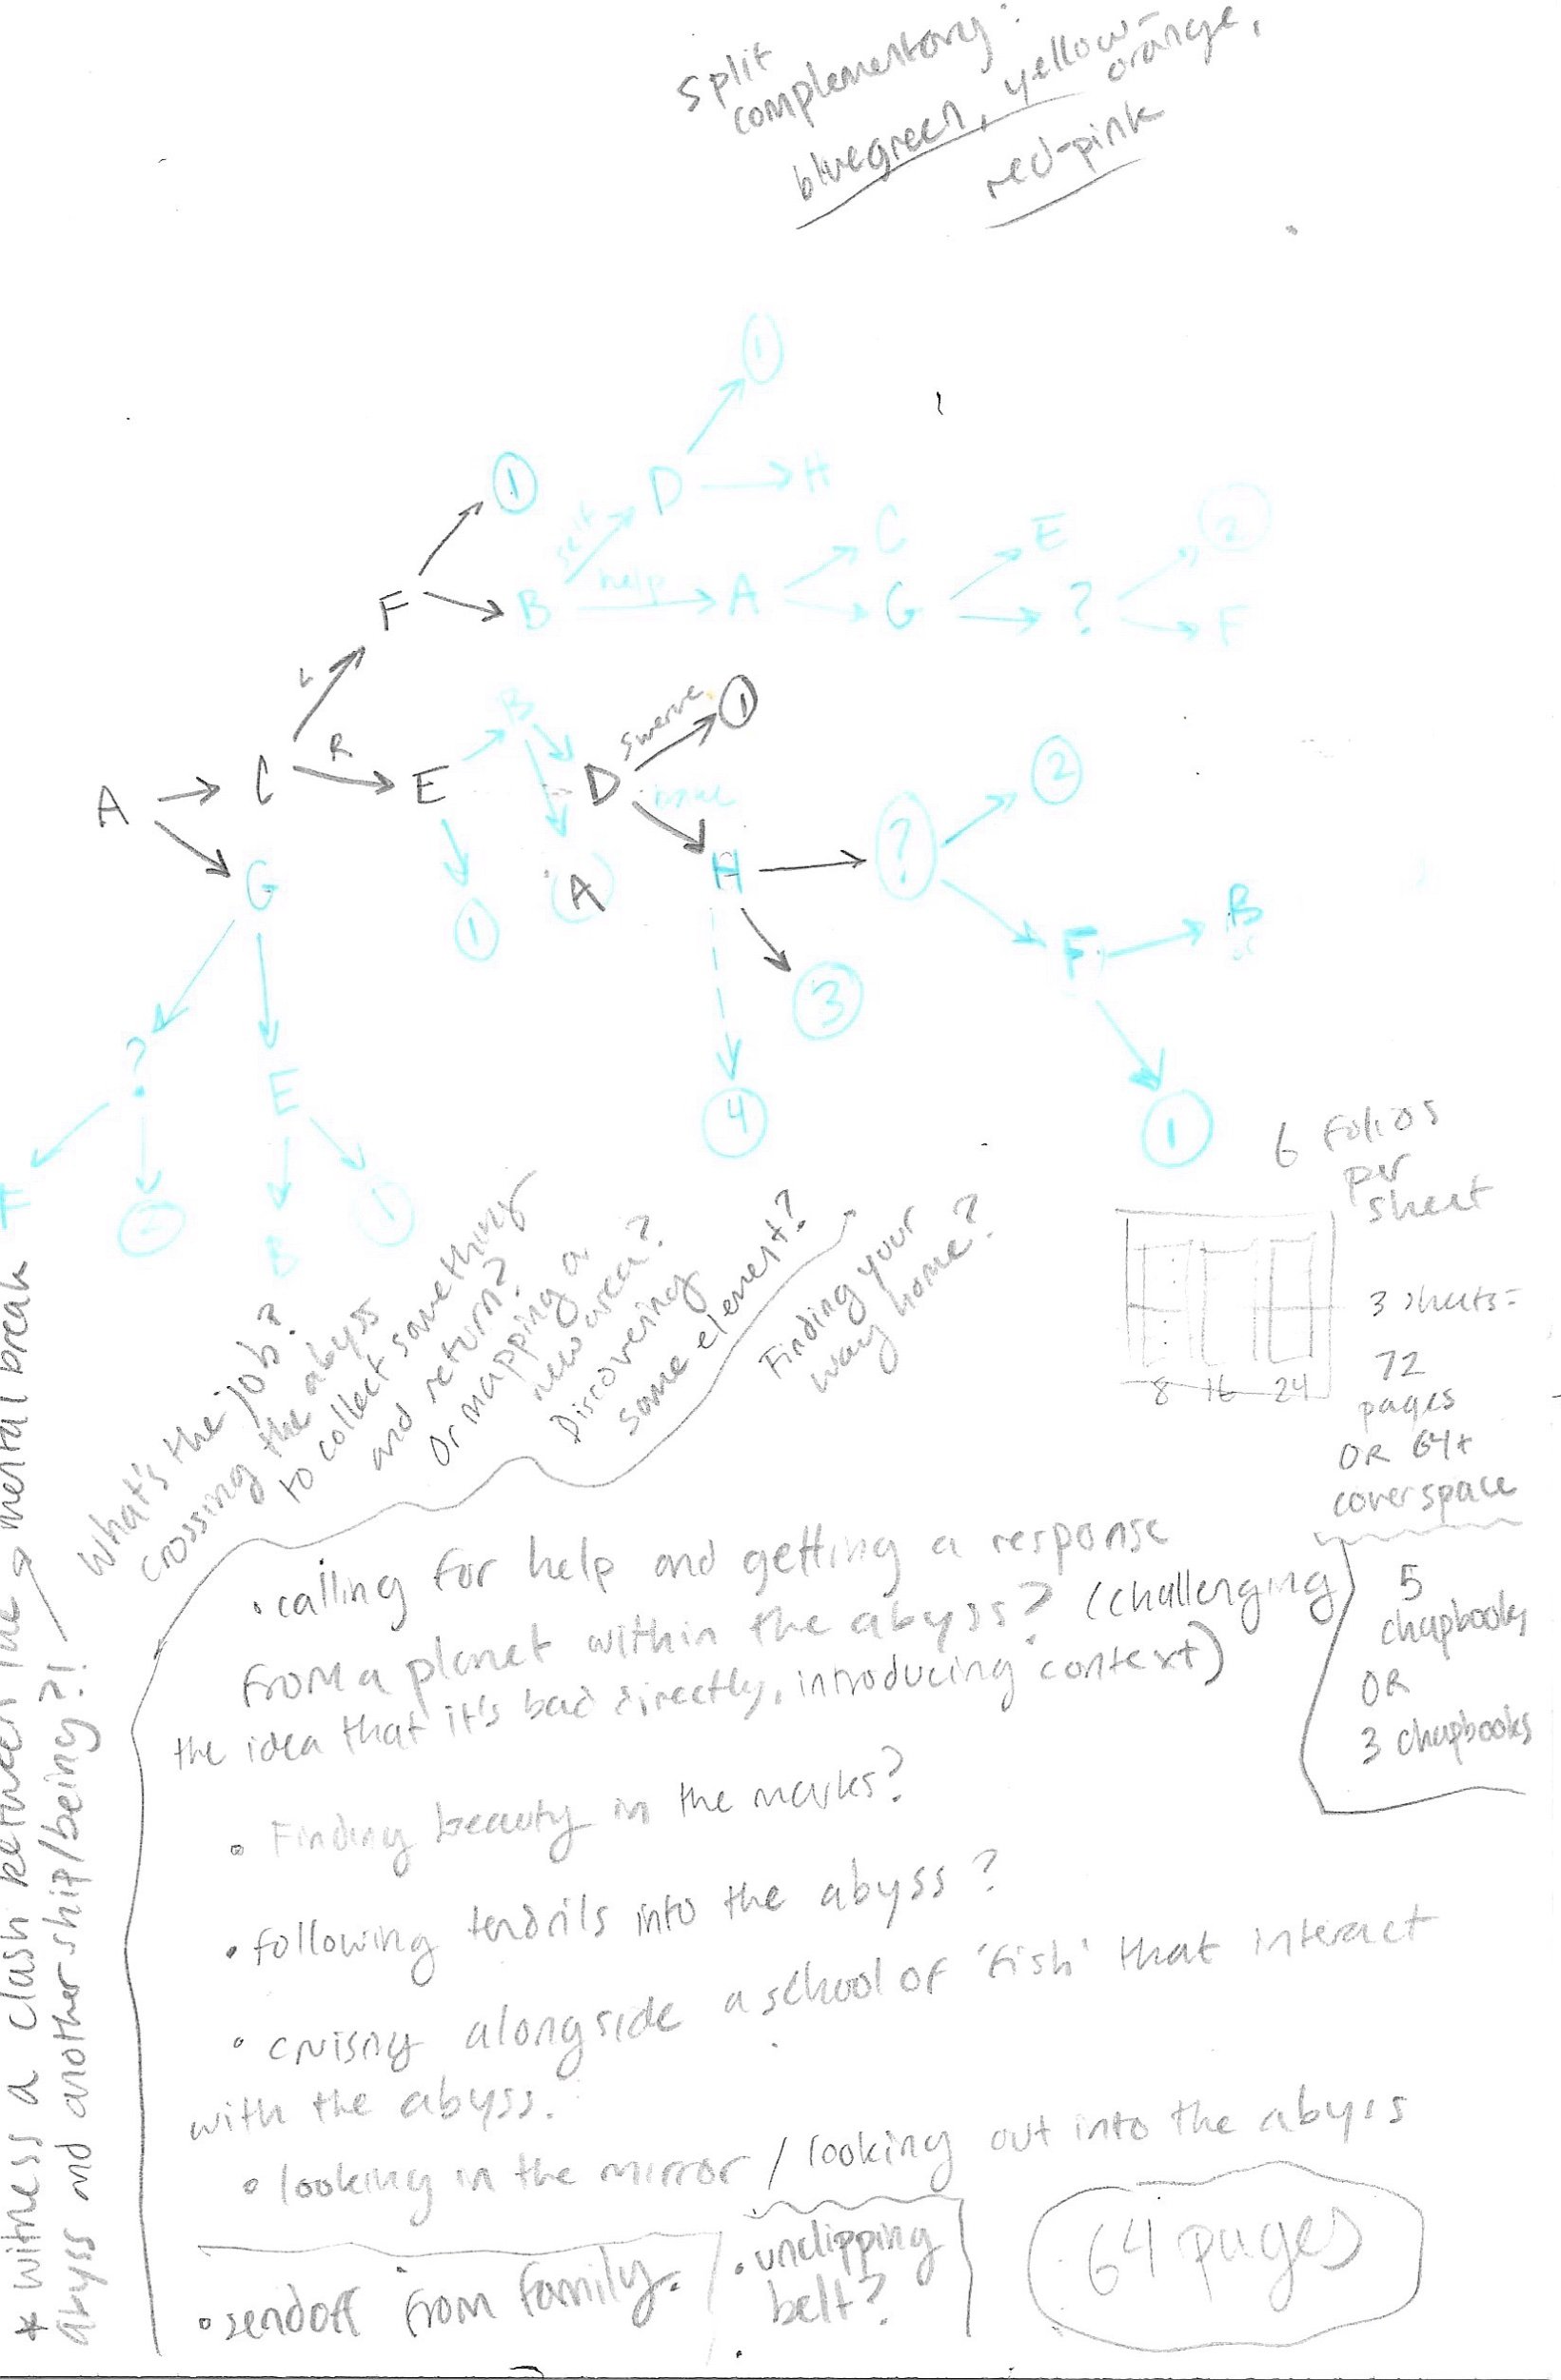 Split
complementary:
bluegreen, yellow-
orange,
red-pink
1
1
D
H
self
C
E
2
F
B
help
A
G
?
F
L
B
swerve
1
R
D
2
A
C
E
?
G
A
H
B
1
F
3
?
E
4
1
F
2
1
B
6 folios
per
sheet
3 sheets =
72
pages
OR 64+
cover space
8 16 24
5
chapbooks
OR
3 chapbooks
What's the job?
crossing the abyss
to collect something
and return?
Or mapping a
new area?
Discovering
some element?
Finding your
way home?
• calling for help and getting a response
from a planet within the abyss? (challenging
the idea that it's bad directly, introducing context)
• Finding beauty in the marks?
• following tendrils into the abyss?
• cruisng alongside a school of 'fish' that interact
with the abyss.
• looking in the mirror / looking out into the abyss
• sendoff from family.
• unclipping
belt?
64 pages
* witness a clash between the
abyss and another ship/being?!
mental break